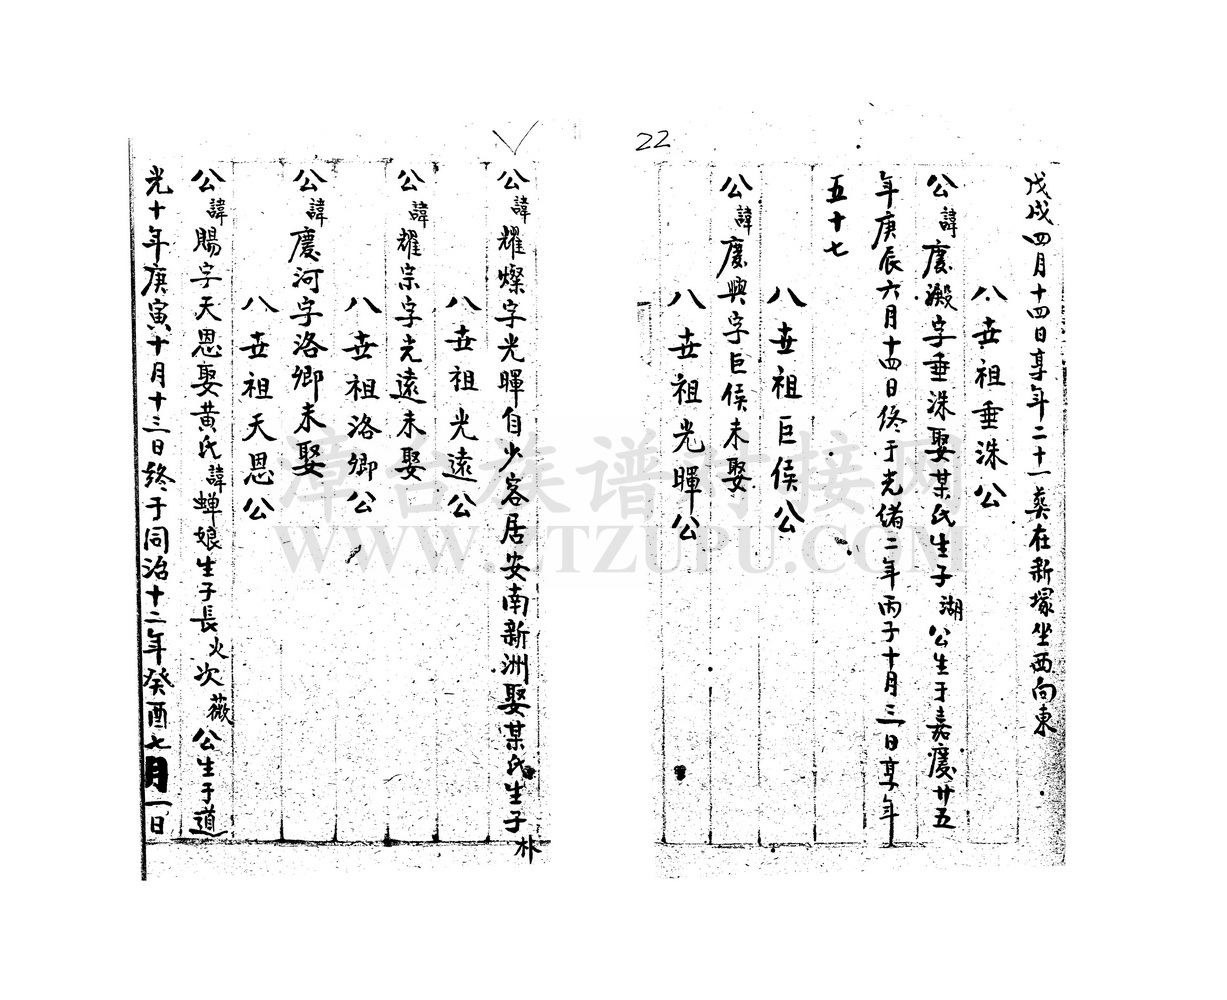 22
戊戌四月十四日享年二十一葬在新塚坐西向東
八世祖垂洙公
公諱慶澱字垂洙娶某氏生子湖公生于嘉慶廿五
年庚辰六月十四日終于光緒二年丙子十月三日享年
五十七
八世祖巨侯公
公諱慶興字巨侯未娶
八世祖光暉公
公諱耀燦字光暉自少客居安南新洲娶某氏生子朴
八世祖光遠公
公諱耀宗字光遠未娶
八世祖洛卿公
公諱慶河字洛卿未娶
八世祖天恩公
公諱賜字天恩娶黃氏諱蟬娘生子長火次薇公生于道
光十年庚寅十月十三日終于同治十二年癸酉七月一日
漳台族谱对接网
WWW.ZTZUPU.COM